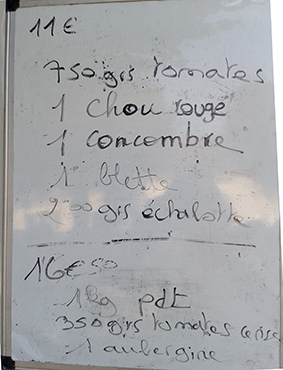 11€
750grs tomates
1 chou rouge
1 concombre
1 blette
200grs échalotte
16€50
1kg pdt
350grs tomates cerise
1 aubergine